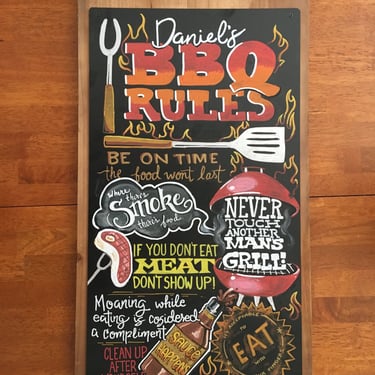 Daniel's
BBQ
RULES
BE ON TIME
the food wont last
where there's
Smoke
there's food
NEVER
TOUCH
ANOTHER
MAN'S
GRILL!
IF YOU DON'T EAT
MEAT
DON'T SHOW UP!
Moaning while
eating is cosidered
a compliment
SAUCE
HAPPENS
ACCEPTABLE TO
EAT
WITH
CLEAN UP
AFTER